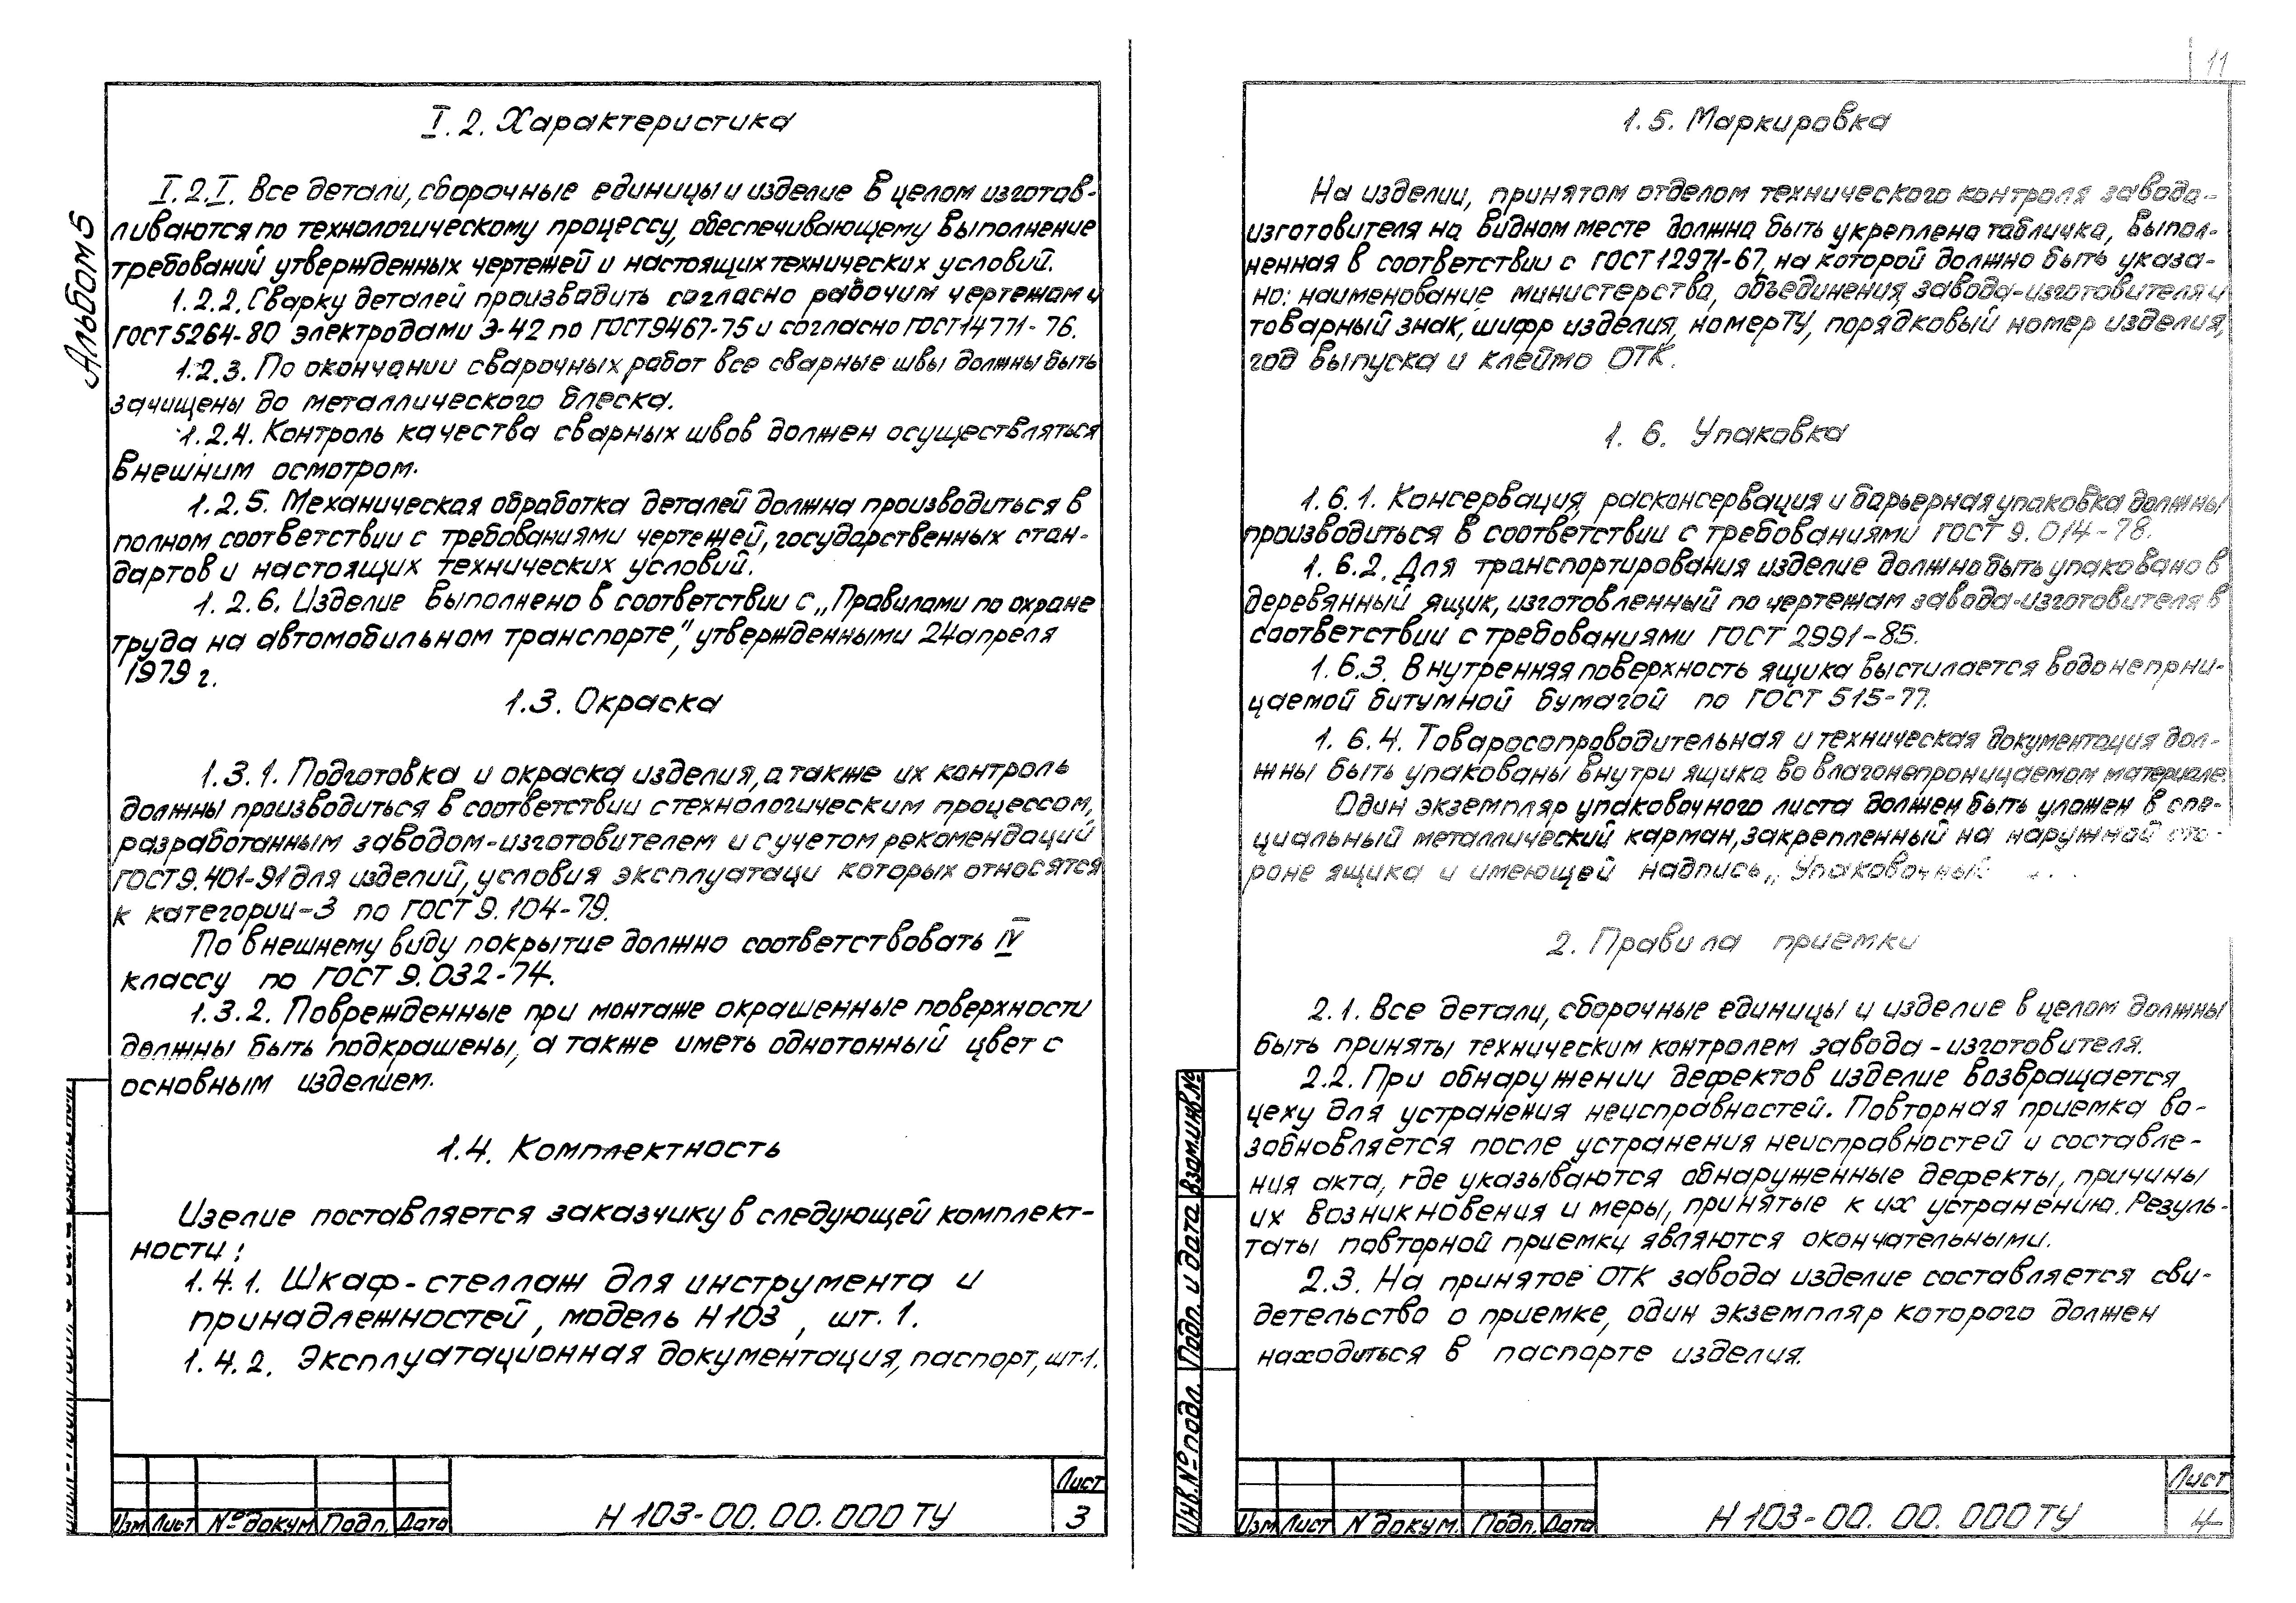 Альбом 5
I.2. Характеристика
I.2.I. Все детали, сборочные единицы и изделие в целом изготав-
ливаются по технологическому процессу, обеспечивающему выполнение
требований утвержденных чертежей и настоящих технических условий.
1.2.2. Сварку деталей производить согласно рабочим чертежам и
ГОСТ 5264-80 электродами Э-42 по ГОСТ 9467-75 и согласно ГОСТ 14771-76.
1.2.3. По окончании сварочных работ все сварные швы должны быть
зачищены до металлического блеска.
1.2.4. Контроль качества сварных швов должен осуществляться
внешним осмотром.
1.2.5. Механическая обработка деталей должна производиться в
полном соответствии с требованиями чертежей, государственных стан-
дартов и настоящих технических условий.
1.2.6. Изделие выполнено в соответствии с „Правилами по охране
труда на автомобильном транспорте", утвержденными 24 апреля
1979 г.
1.3. Окраска
1.3.1. Подготовка и окраска изделия, а также их контроль
должны производиться в соответствии с технологическим процессом,
разработанным заводом-изготовителем и с учетом рекомендаций
ГОСТ 9.401-91 для изделий, условия эксплуатаци которых относятся
к категории-3 по ГОСТ 9.104-79.
По внешнему виду покрытие должно соответствовать IV
классу по ГОСТ 9.032-74.
1.3.2. Поврежденные при монтаже окрашенные поверхности
должны быть подкрашены, а также иметь однотонный цвет с
основным изделием.
1.4. Комплектность
Изелие поставляется заказчику в следующей комплект-
ности:
1.4.1. Шкаф-стеллаж для инструмента и
принадлежностей, модель Н103, шт. 1.
1.4.2. Эксплуатационная документация, паспорт, шт.1.
Изм Лист № докум Подп. Дата
Н 103-00.00.000 ТУ
Лист
3
11
1.5. Маркировка
На изделии, принятом отделом технического контроля завода-
изготовителя на видном месте должна быть укреплена табличка, выпол-
ненная в соответствии с ГОСТ 12971-67, на которой должно быть указа-
но: наименование министерства, объединения, завода-изготовителя и
товарный знак, шифр изделия, номер ТУ, порядковый номер изделия,
год выпуска и клеймо ОТК.
1.6. Упаковка
1.6.1. Консервация, расконсервация и барьерная упаковка должны
производиться в соответствии с требованиями ГОСТ 9.014-78.
1.6.2. Для транспортирования изделие должно быть упаковано в
деревянный ящик, изготовленный по чертежам завода-изготовителя в
соответствии с требованиями ГОСТ 2991-85.
1.6.3. Внутренняя поверхность ящика выстилается водонепрни-
цаемой битумной бумагой по ГОСТ 515-77.
1.6.4. Товаросопроводительная и техническая документация дол-
жны быть упакованы внутри ящика во влагонепроницаемом материале.
Один экземпляр упаковочного листа должен быть уложен в спе-
циальный металлический карман, закрепленный на наружной сто-
роне ящика и имеющей надпись „Упаковочный
2. Правила приемки
2.1. Все детали, сборочные единицы и изделие в целом должны
быть приняты техническим контролем завода-изготовителя.
2.2. При обнаружении дефектов изделие возвращается
цеху для устранения неисправностей. Повторная приемка во-
зобновляется после устранения неисправностей и составле-
ния акта, где указываются обнаруженные дефекты, причины
их возникновения и меры, принятые к их устранению. Резуль-
таты повторной приемки являются окончательными.
2.3. На принятое ОТК завода изделие составляется сви-
детельство о приемке, один экземпляр которого должен
находиться в паспорте изделия.
Инв.№ подл. Подп. и дата Взам.инв.№
Изм Лист N докум. Подп. Дата
Н 103-00.00.000 ТУ
Лист
4